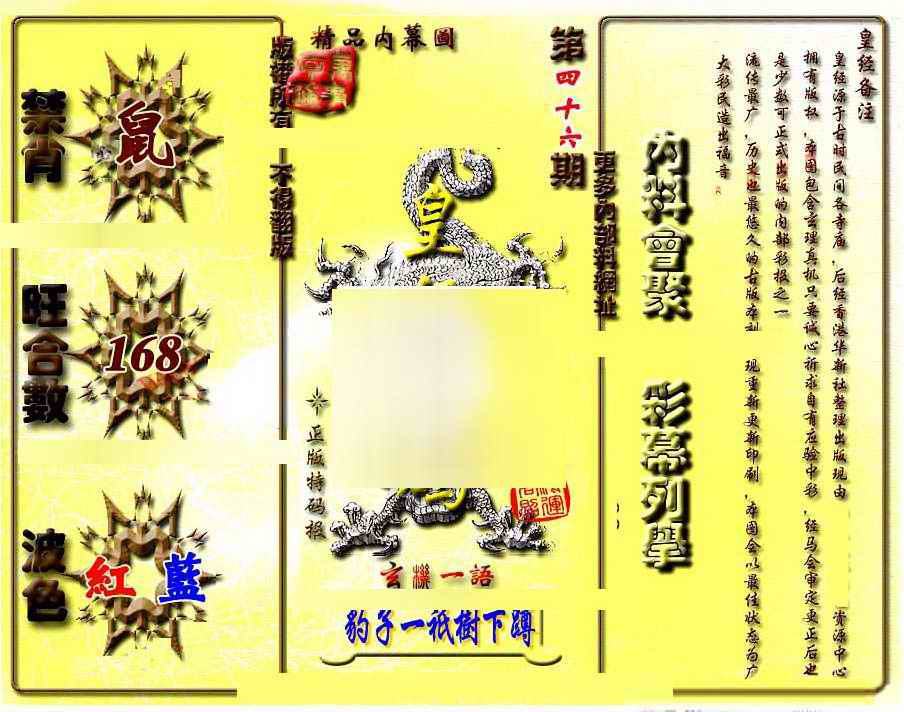 精品内幕圖
第四十六期
版權所有
不得翻版
禁肖
鼠
旺合數
168
波色
紅 藍
皇
正版特码报
玄機一語
豹子一祇樹下蹲
更多內部料網址
内料會聚
彩幕列學
皇经备注
皇经源于古时民间各寺庙，后经香港华新社整理出版现由
资源中心
拥有版权，本图包含玄理真机只要诚心祈求自有应验中彩，经马会审定更正后也
是少数可正式出版的内部彩报之一
流传最广，历史也最悠久的古版本刊
现重新更新印刷，本图会以最佳状态为广
大彩民造出福音